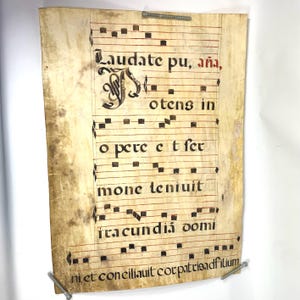 Laudate pu, aña,
Potens in
o pere e t ser
mone leniuit
iracundiã domi
ni et conciliauit cor patris ad filium